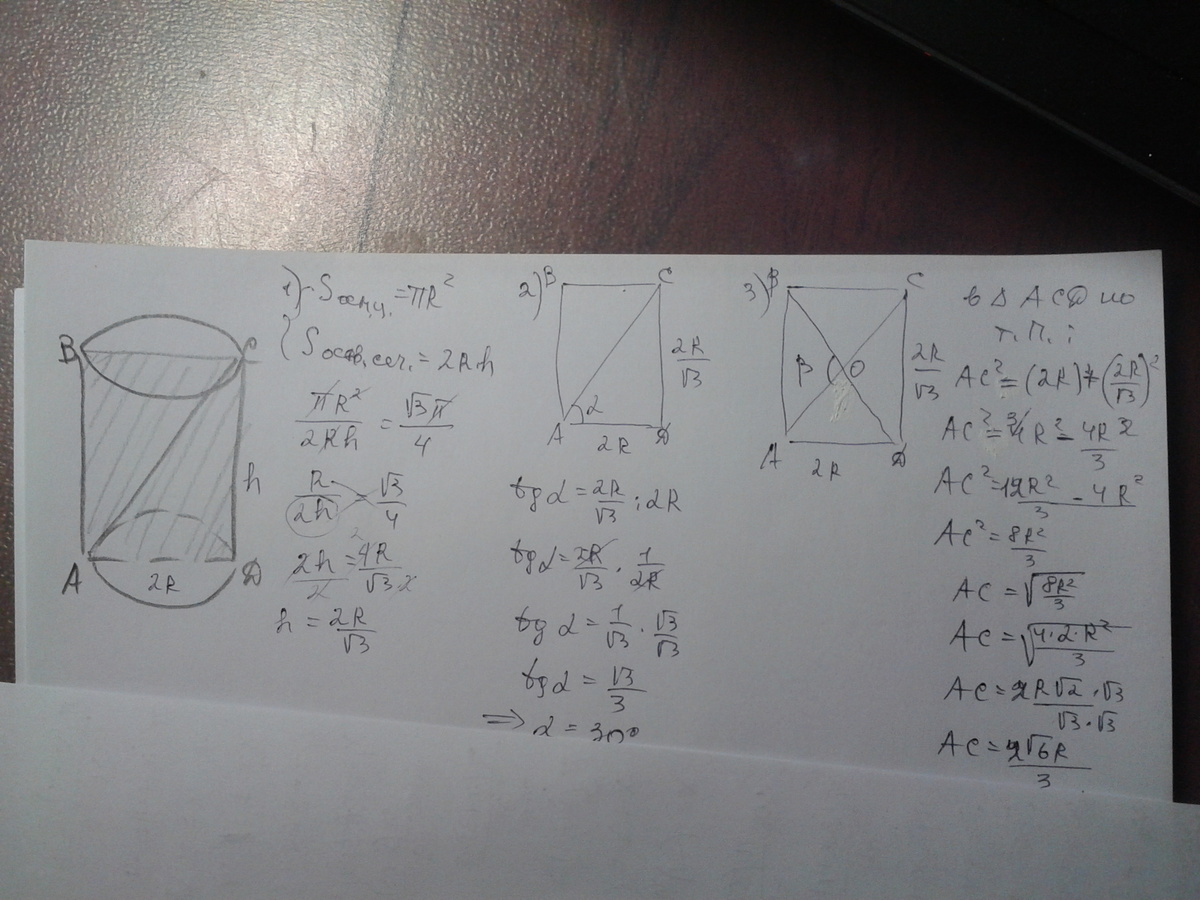 B
C
h
A
2R
D
1) Sосн.ц. = πR²
Sосев.сеч. = 2Rh
πR²/2Rh = √3π/4
R/2h = √3/4
2h/2 = 4R/√3·2
h = 2R/√3
2)
B
C
2R/√3
A
α
2R
D
tg α = 2R/√3 : 2R
tg α = 2R/√3 · 1/2R
tg α = 1/√3 · √3/√3
tg α = √3/3
⇒ α = 30°
3)
B
C
β
O
2R/√3
A
2R
D
в Δ ACD по
т.П.:
AC² = (2R)² + (2R/√3)²
AC² = 4R² - 4R²/3
AC² = 12R² - 4R²/3
AC² = 8R²/3
AC = √8R²/3
AC = √4·2·R²/3
AC = 2R√2·√3/√3·√3
AC = 2√6R/3